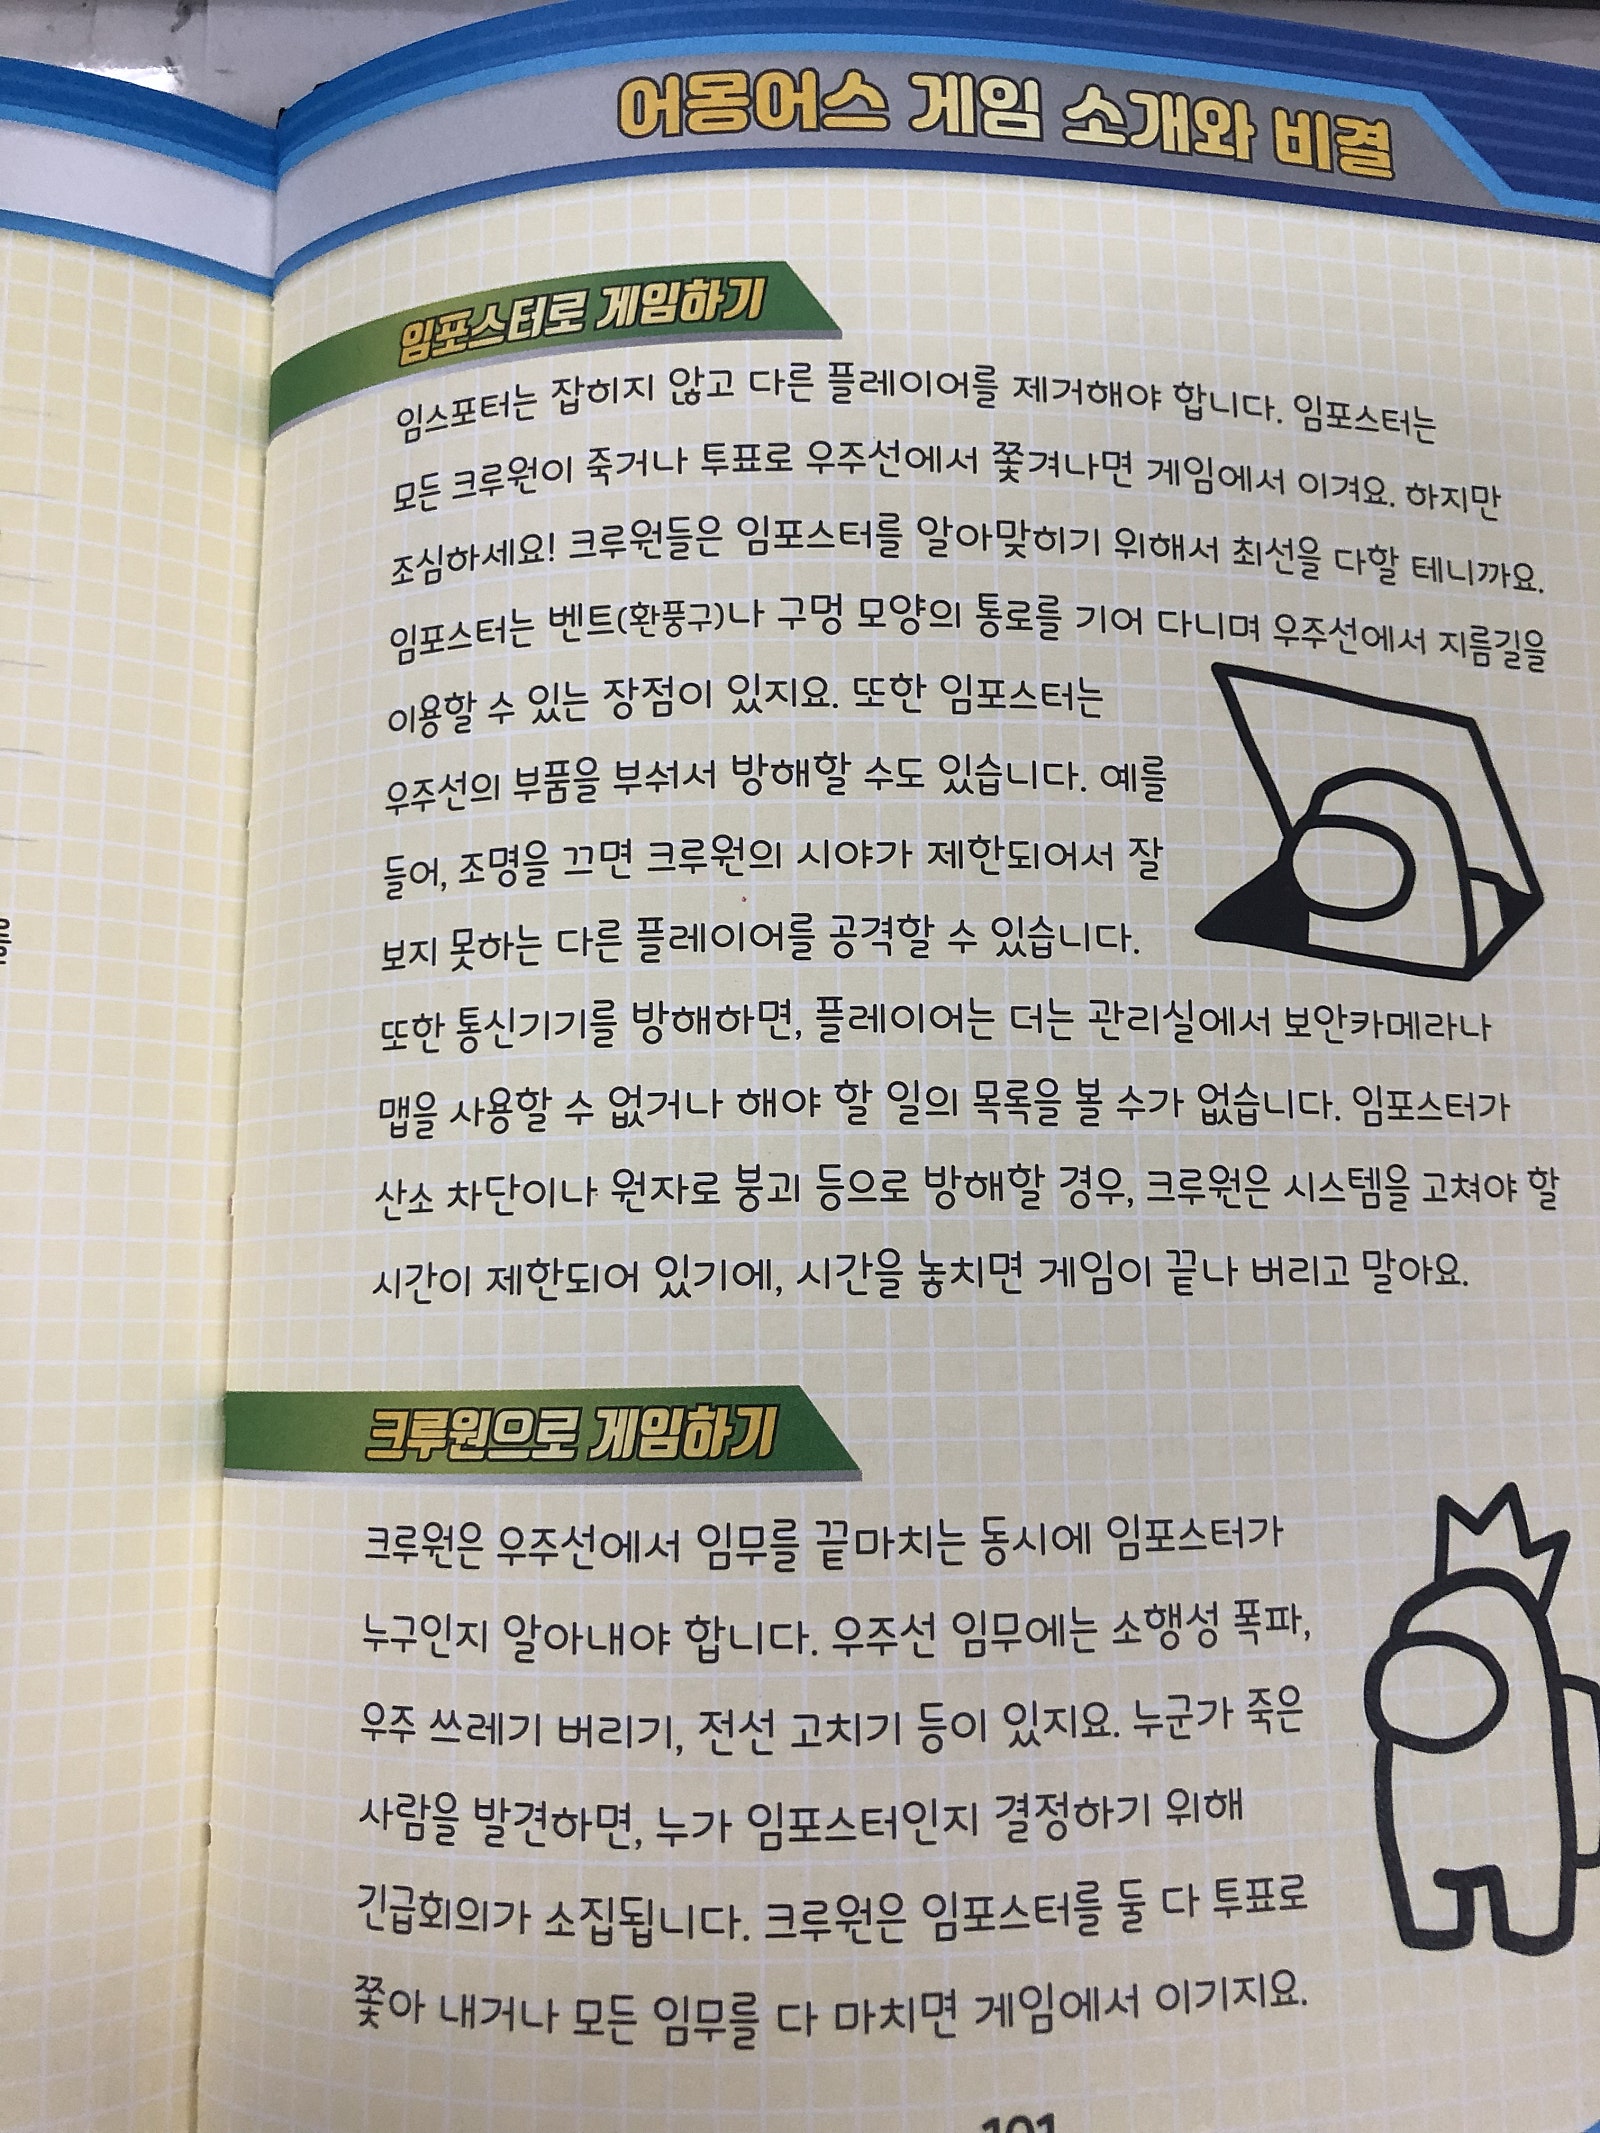 어몽어스 게임 소개와 비결
임포스터로 게임하기
임스포터는 잡히지 않고 다른 플레이어를 제거해야 합니다. 임포스터는
모든 크루원이 죽거나 투표로 우주선에서 쫓겨나면 게임에서 이겨요. 하지만
조심하세요! 크루원들은 임포스터를 알아맞히기 위해서 최선을 다할 테니까요.
임포스터는 벤트(환풍구)나 구멍 모양의 통로를 기어 다니며 우주선에서 지름길을
이용할 수 있는 장점이 있지요. 또한 임포스터는
우주선의 부품을 부숴서 방해할 수도 있습니다. 예를
들어, 조명을 끄면 크루원의 시야가 제한되어서 잘
보지 못하는 다른 플레이어를 공격할 수 있습니다.
또한 통신기기를 방해하면, 플레이어는 더는 관리실에서 보안카메라나
맵을 사용할 수 없거나 해야 할 일의 목록을 볼 수가 없습니다. 임포스터가
산소 차단이나 원자로 붕괴 등으로 방해할 경우, 크루원은 시스템을 고쳐야 할
시간이 제한되어 있기에, 시간을 놓치면 게임이 끝나 버리고 말아요.
크루원으로 게임하기
크루원은 우주선에서 임무를 끝마치는 동시에 임포스터가
누구인지 알아내야 합니다. 우주선 임무에는 소행성 폭파,
우주 쓰레기 버리기, 전선 고치기 등이 있지요. 누군가 죽은
사람을 발견하면, 누가 임포스터인지 결정하기 위해
긴급회의가 소집됩니다. 크루원은 임포스터를 둘 다 투표로
쫓아 내거나 모든 임무를 다 마치면 게임에서 이기지요.
101
를